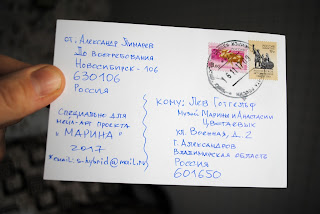 от: Александр Лимарев
До востребования
Новосибирск - 106
630106
Россия
Специально для
мейл-арт проекта
"МАРИНА"
2017
кому: Лев Готгельф
Музей Марины и Анастасии
Цветаевых
ул. Военная, д. 2
г. Александров
Владимирской области
Россия
601650